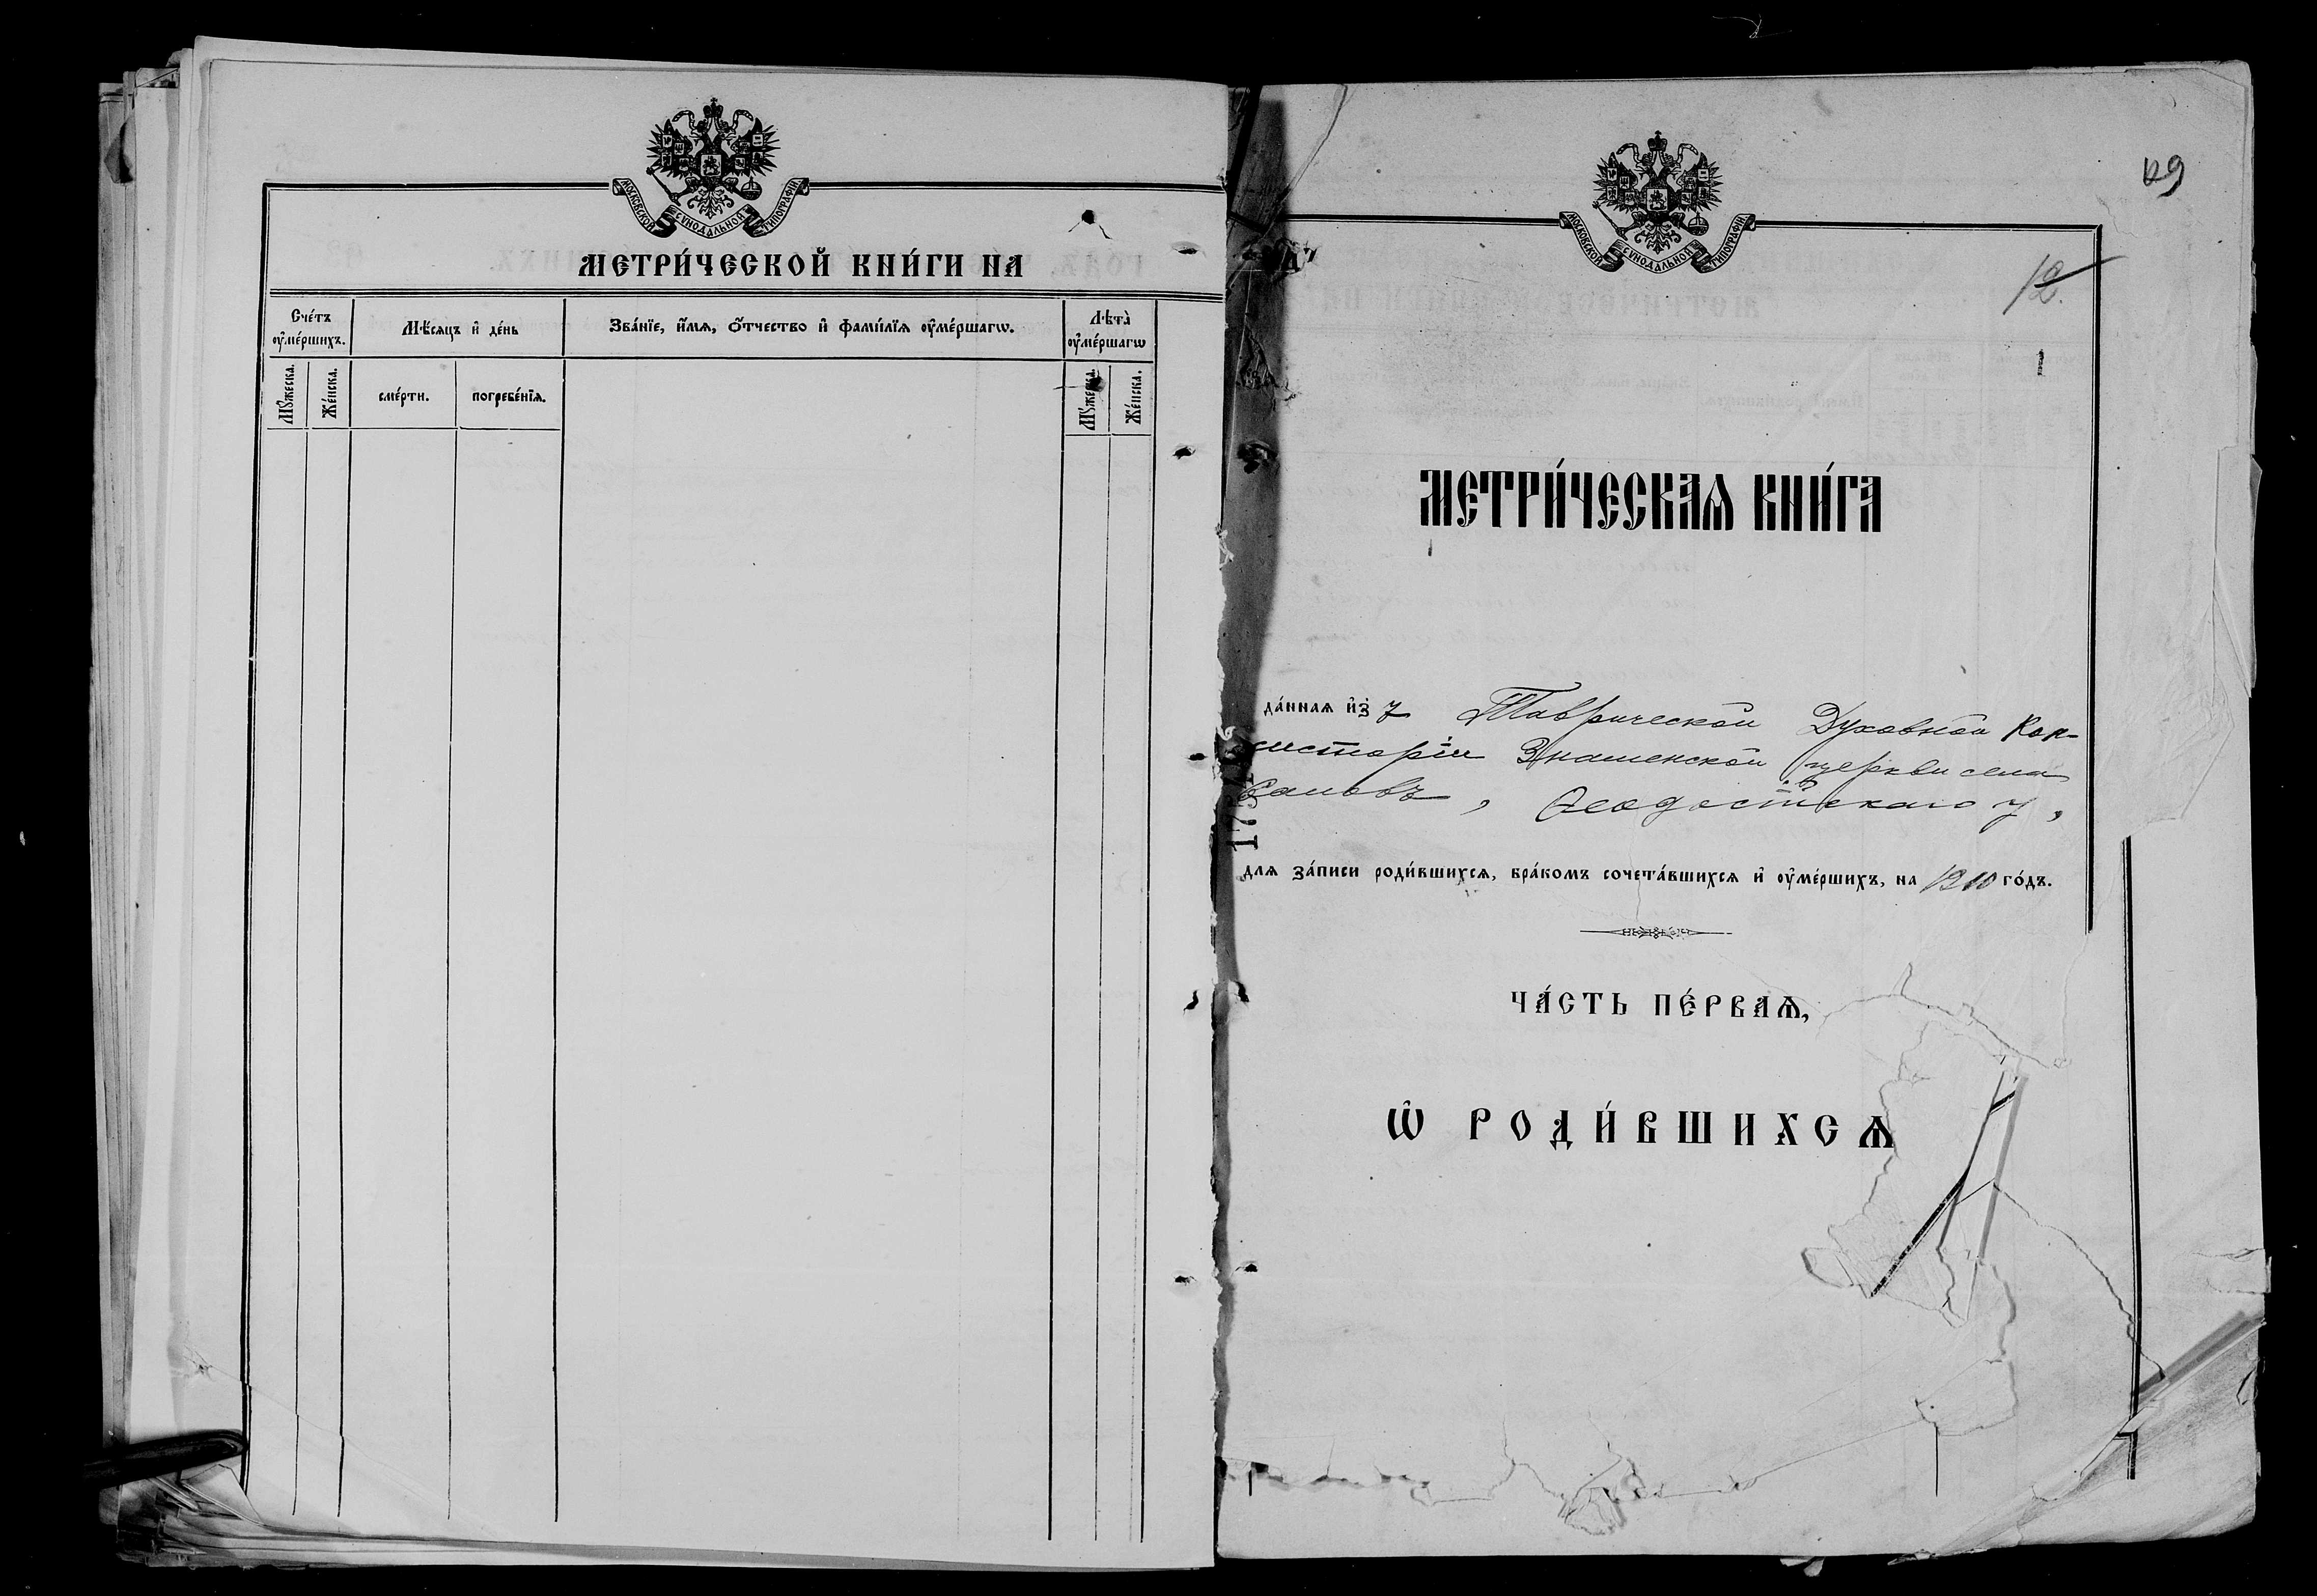 МОСКОВСКОЙ СѴНОДАЛЬНОЙ ТИПОГРАФІИ.
МЕТРИ́ЧЕСКОЙ КНИ́ГИ НА
Сче́тъ ᲂу҆ме́ршихъ.
Мѣ́сяцъ и҆ де́нь
Зва́нїе, и҆́мѧ, ѻ҆́тчество и҆ фами́лїѧ ᲂу҆ме́ршагѡ.
Лѣта̀ ᲂу҆ме́ршагѡ
Мꙋ́жеска.
Же́нска.
сме́рти.
погребе́нїѧ.
Мꙋ́жеска.
Же́нска.
МОСКОВСКОЙ СѴНОДАЛЬНОЙ ТИПОГРАФІИ.
12.
1
МЕТРИ́ЧЕСКАѦ КНИ́ГА
да́нная и҆зъ Таврической Духовной Кон-
систоріи Знаменской церкви села
Ѳеодосійскаго у,
для за́писи роди́вшихсѧ, бра́комъ сочета́вшихсѧ и҆ ᲂу҆ме́ршихъ, на 1910 го́дъ.
ЧА́СТЬ ПЕ́РВАѦ,
Ѡ҆ РОДИ́ВШИХСѦ